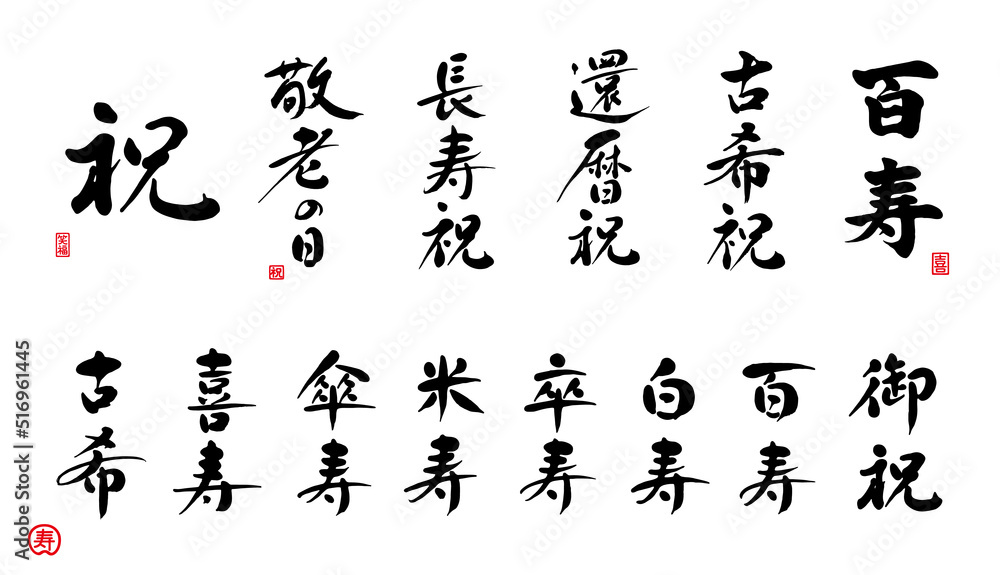 祝
笑福
敬老の日
祝
長寿祝
還暦祝
古希祝
百寿
喜
古希
喜寿
傘寿
米寿
卒寿
白寿
百寿
御祝
寿
Adobe Stock | #516961445